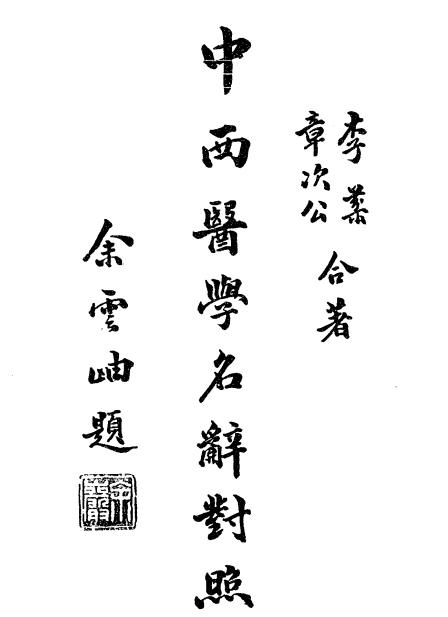 李
章次公
合著
中西醫學名辭對照
余雲岫題
余巖